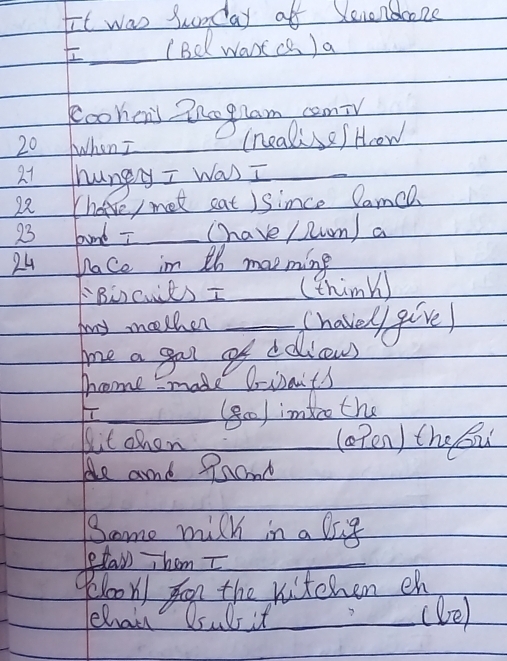 It was Sunday at
I ____ (Bel watch) a
Cooking Program on TV
20 When I ____ (realise) How
21 hungry I was I ____
22 (have/not eat) since lunch
23 and I ____ (have/run) a
24 race in th morning
"Biscuits I ____ (think)
my mother ____ (have/give)
me a gar of dilious
home-made bisaits
I ____ (go) into the
kitchen ____ (open) the fri
de and
Some milk in a big
glass Then I ____
(look) for the kitchen ch
chair but it ____ (be)